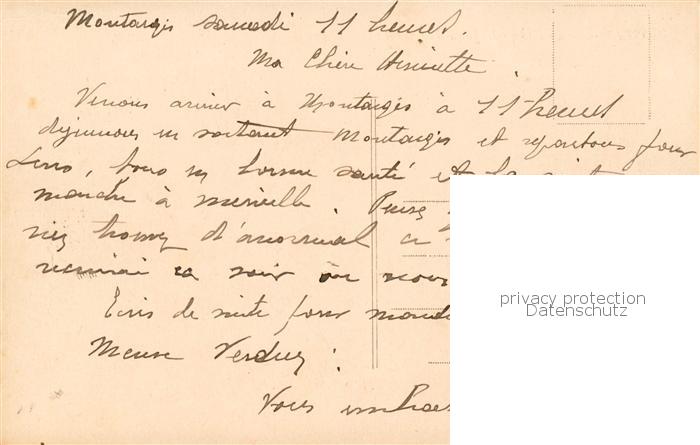 Montargis samedi 11 heures.
Ma Chère Henriette.
Venons arriver à Montargis à 11 heures
déjeunons en sortant Montargis et repartons pour
Sens, tous en bonne santé et
marche à merveille. Pense
rien trouvé d'anormal
ce soir ou nous
Ecris de suite pour
Meuse Verdun.
Vous
privacy protection
Datenschutz